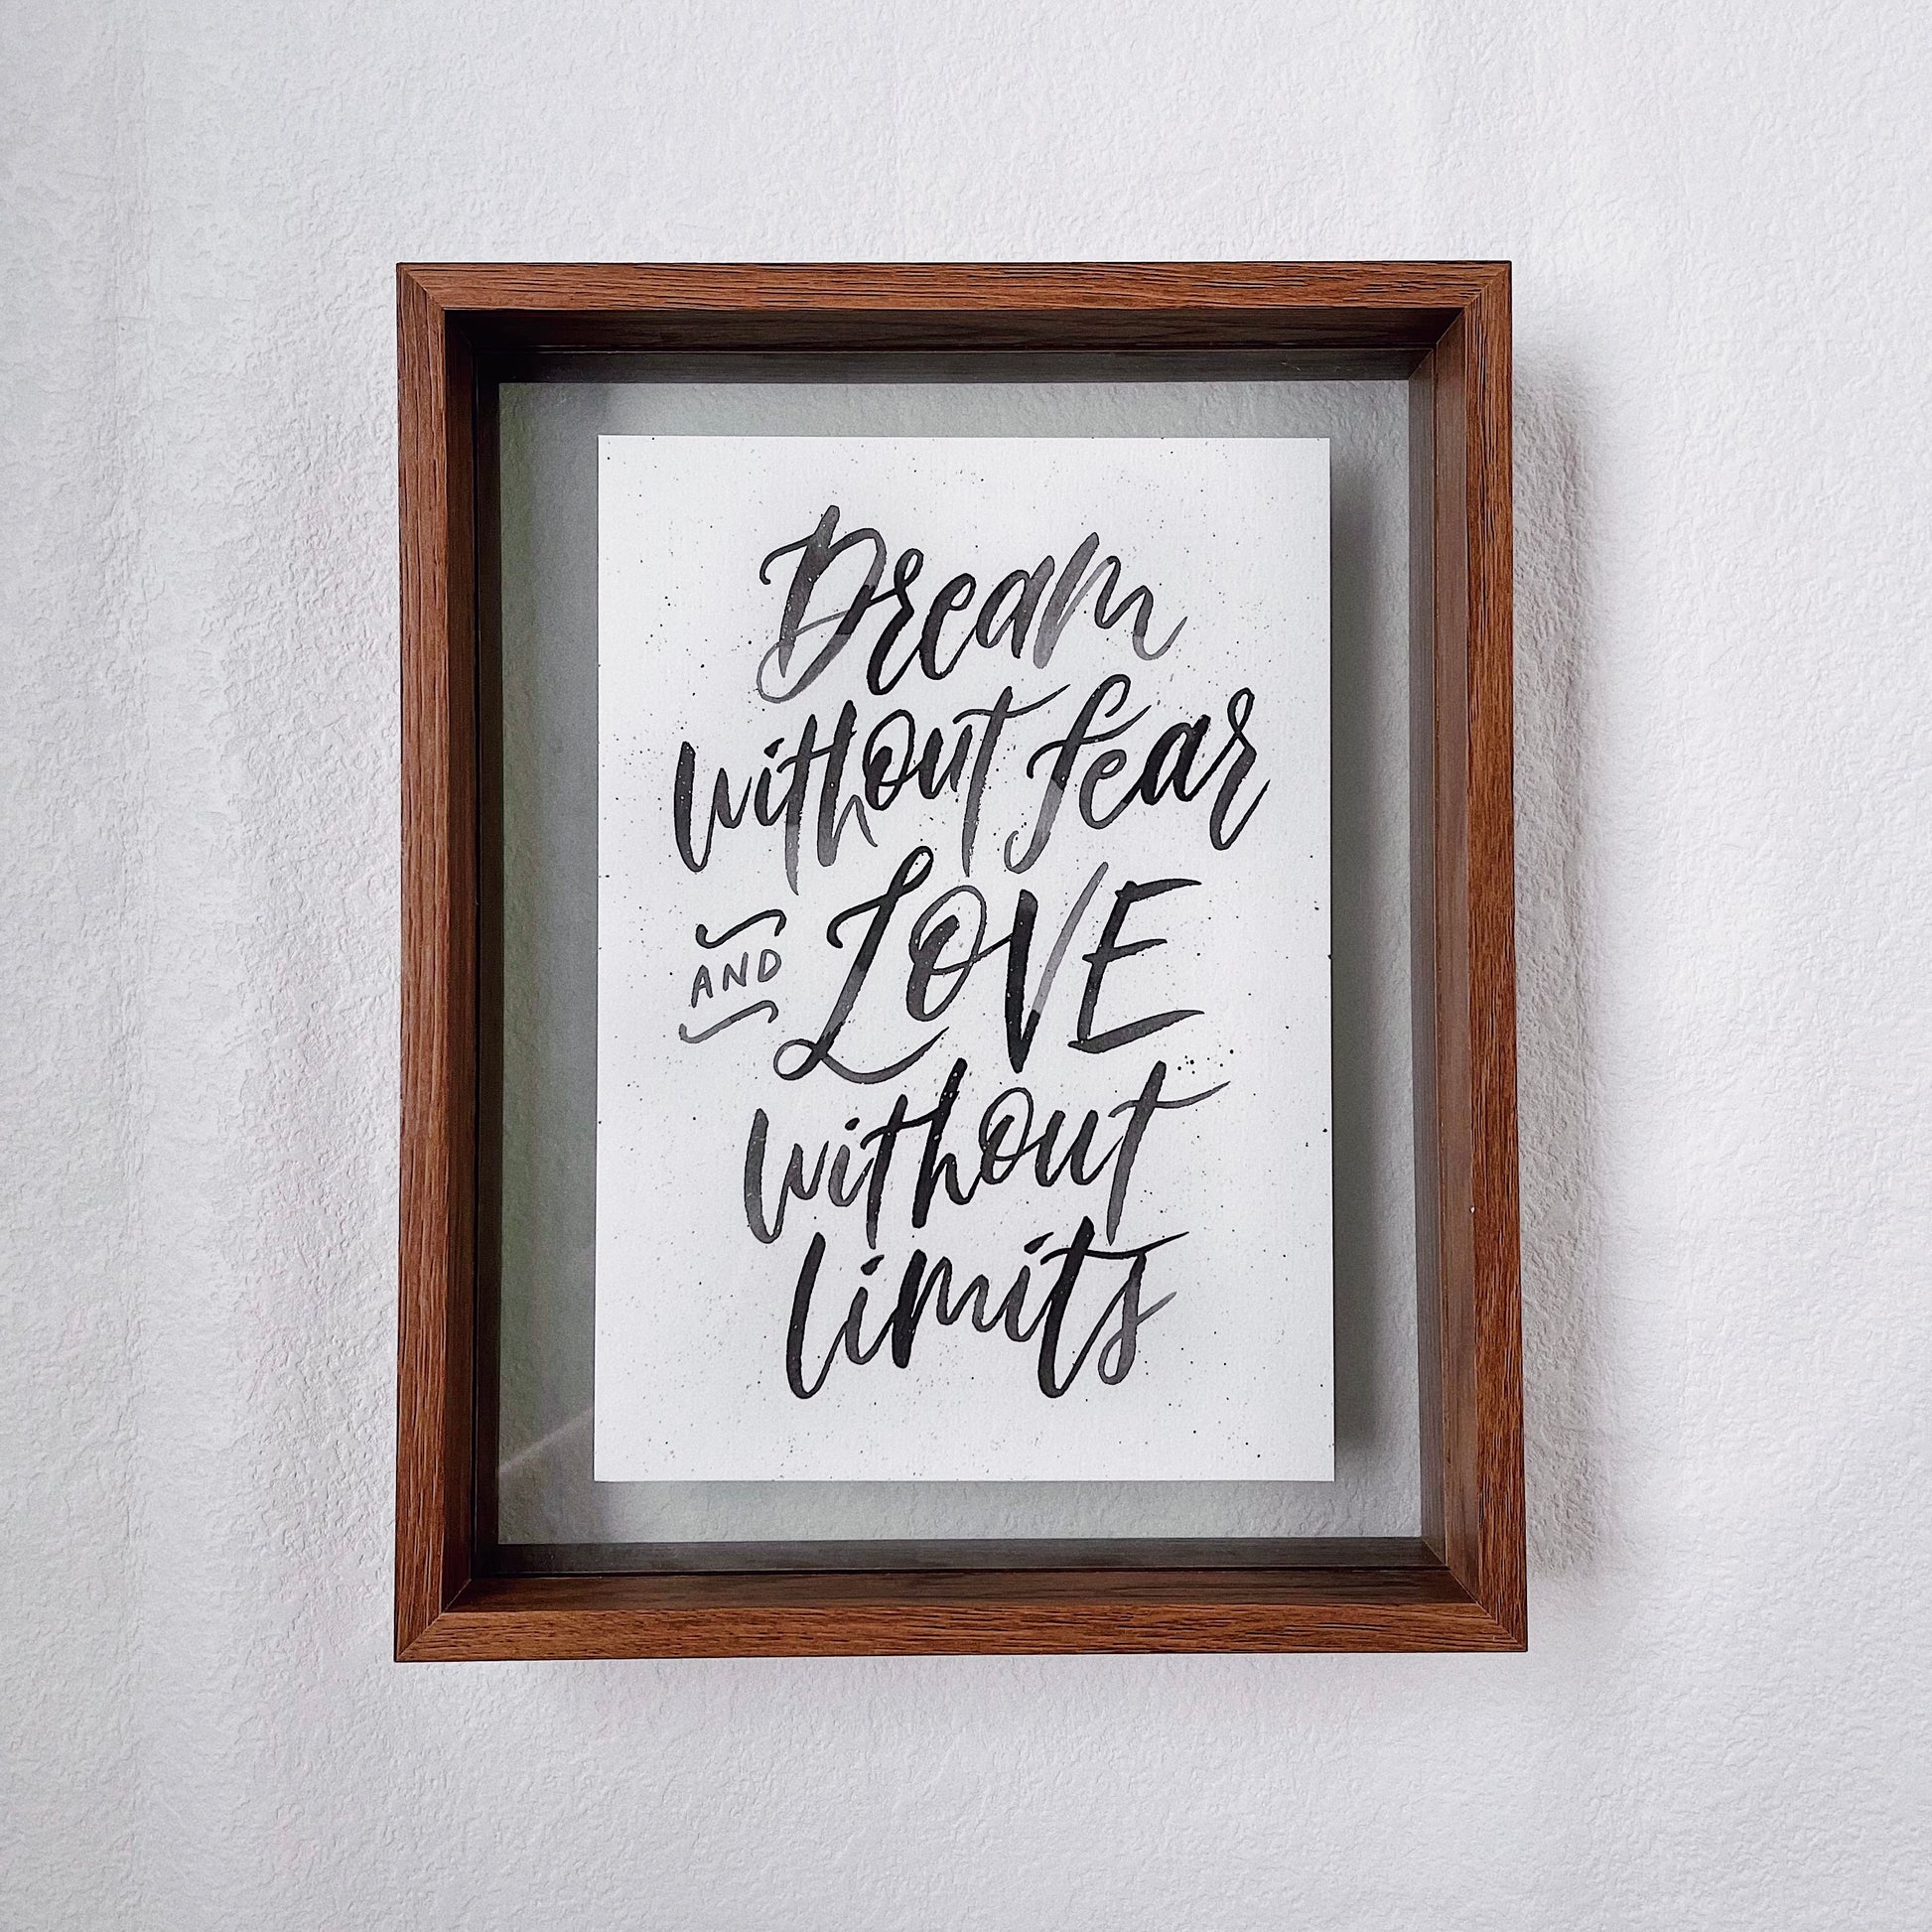 Dream
without fear
AND LOVE
without
limits